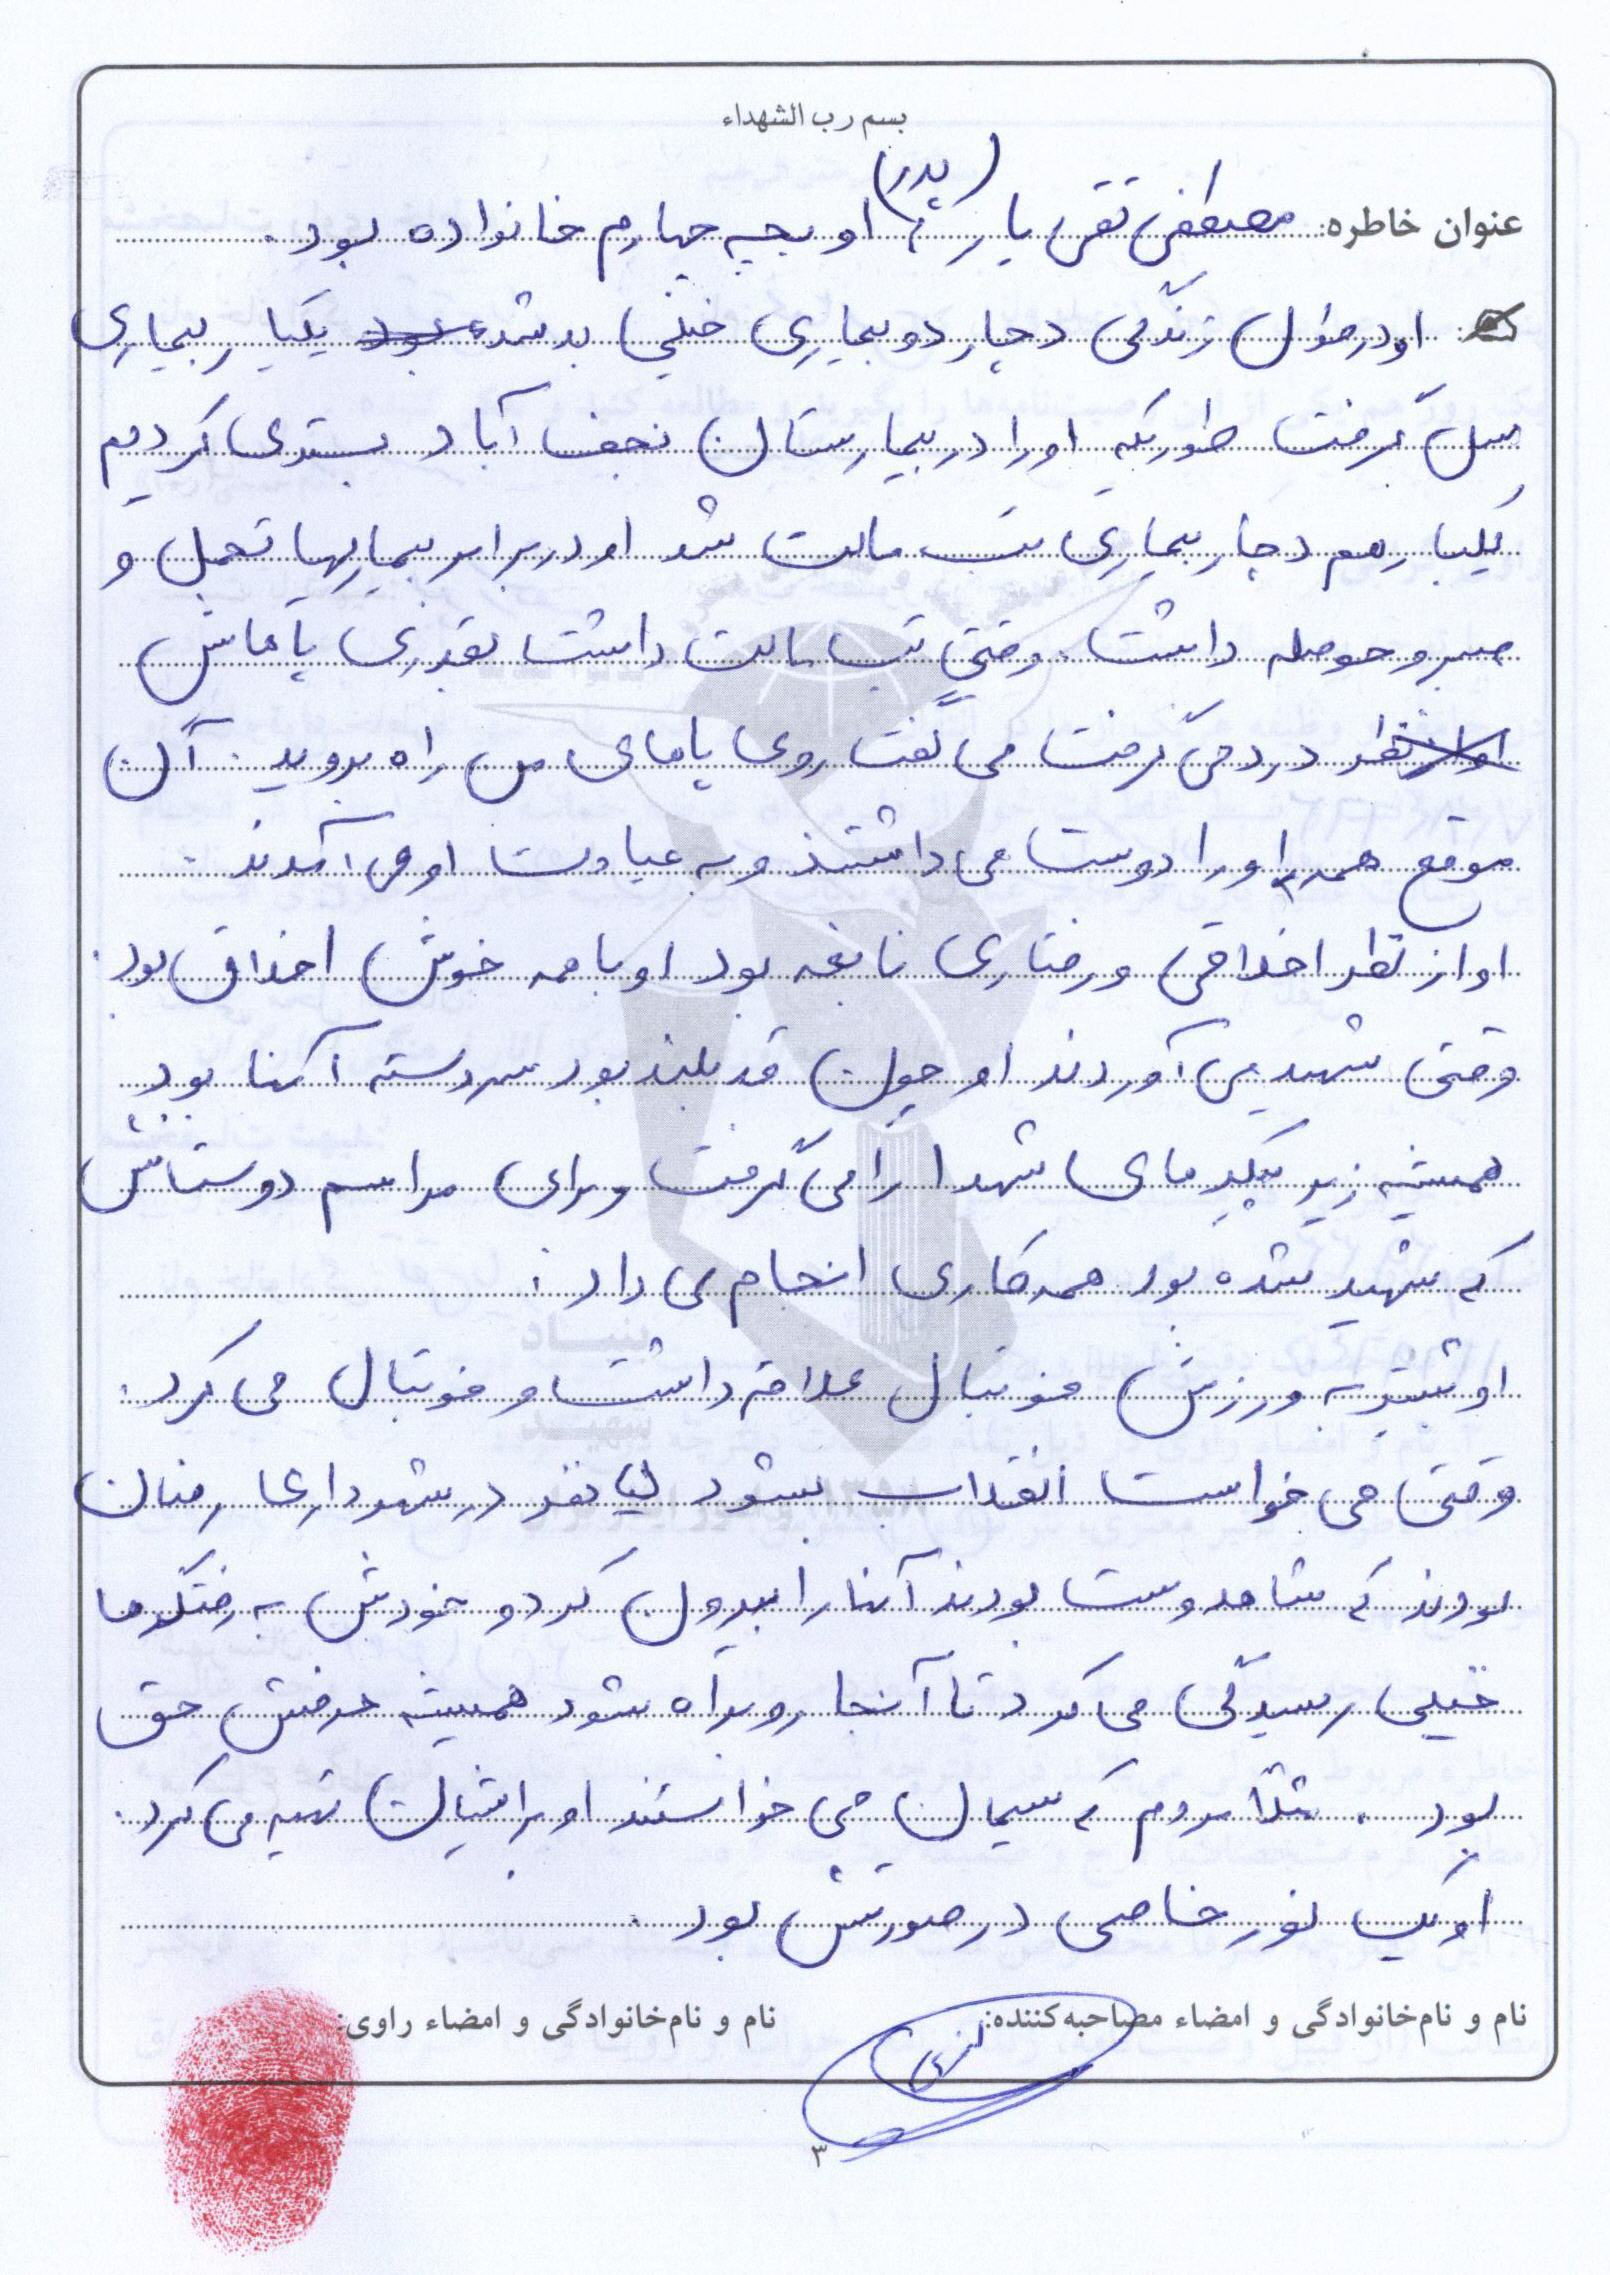 بسم رب الشهداء
(پدر)
عنوان خاطره: مصطفی تقی یار، او بچه چهارم خانواده بود.
او در طول زندگی دچار دو بیماری خیلی بد شده بود یکبار بیماری
سل گرفت طوریکه او را در بیمارستان نجف آباد بستری کردیم
یکبار هم دچار بیماری تب مالت شد او در برابر بیماریها تحمل و
صبر و حوصله داشت. وقتی تب مالت داشت بقدری پاهاش
درد می گرفت می گفت روی پاهای من راه بروید. آن
موقع همه او را دوست می داشتند و به عیادت او می آمدند.
او از نظر اخلاقی و رفتاری نابغه بود او با همه خوش اخلاق بود.
وقتی شهید می آوردند او چون قد بلند بود سردسته آنها بود
همیشه زیر پیکرهای شهدا را می گرفت و برای مراسم دوستاش
که شهید شده بود همه کاری انجام می داد.
او بیشتر به ورزش فوتبال علاقه داشت و فوتبال می کرد.
وقتی می خواست انقلاب بشود نفر در شهرداری
بودند که شاهدوست بودند آنها را بیرون کرد و خودش به رفتگرها
خیلی رسیدگی می کرد تا آنجا روبراه شود همیشه حرفش حق
بود. مثلا مردم که سیمان می خواستند او براشان تهیه می کرد.
او یک نور خاصی در صورتش بود.
نام و نام‌خانوادگی و امضاء مصاحبه‌کننده:
نام و نام‌خانوادگی و امضاء راوی:
۳